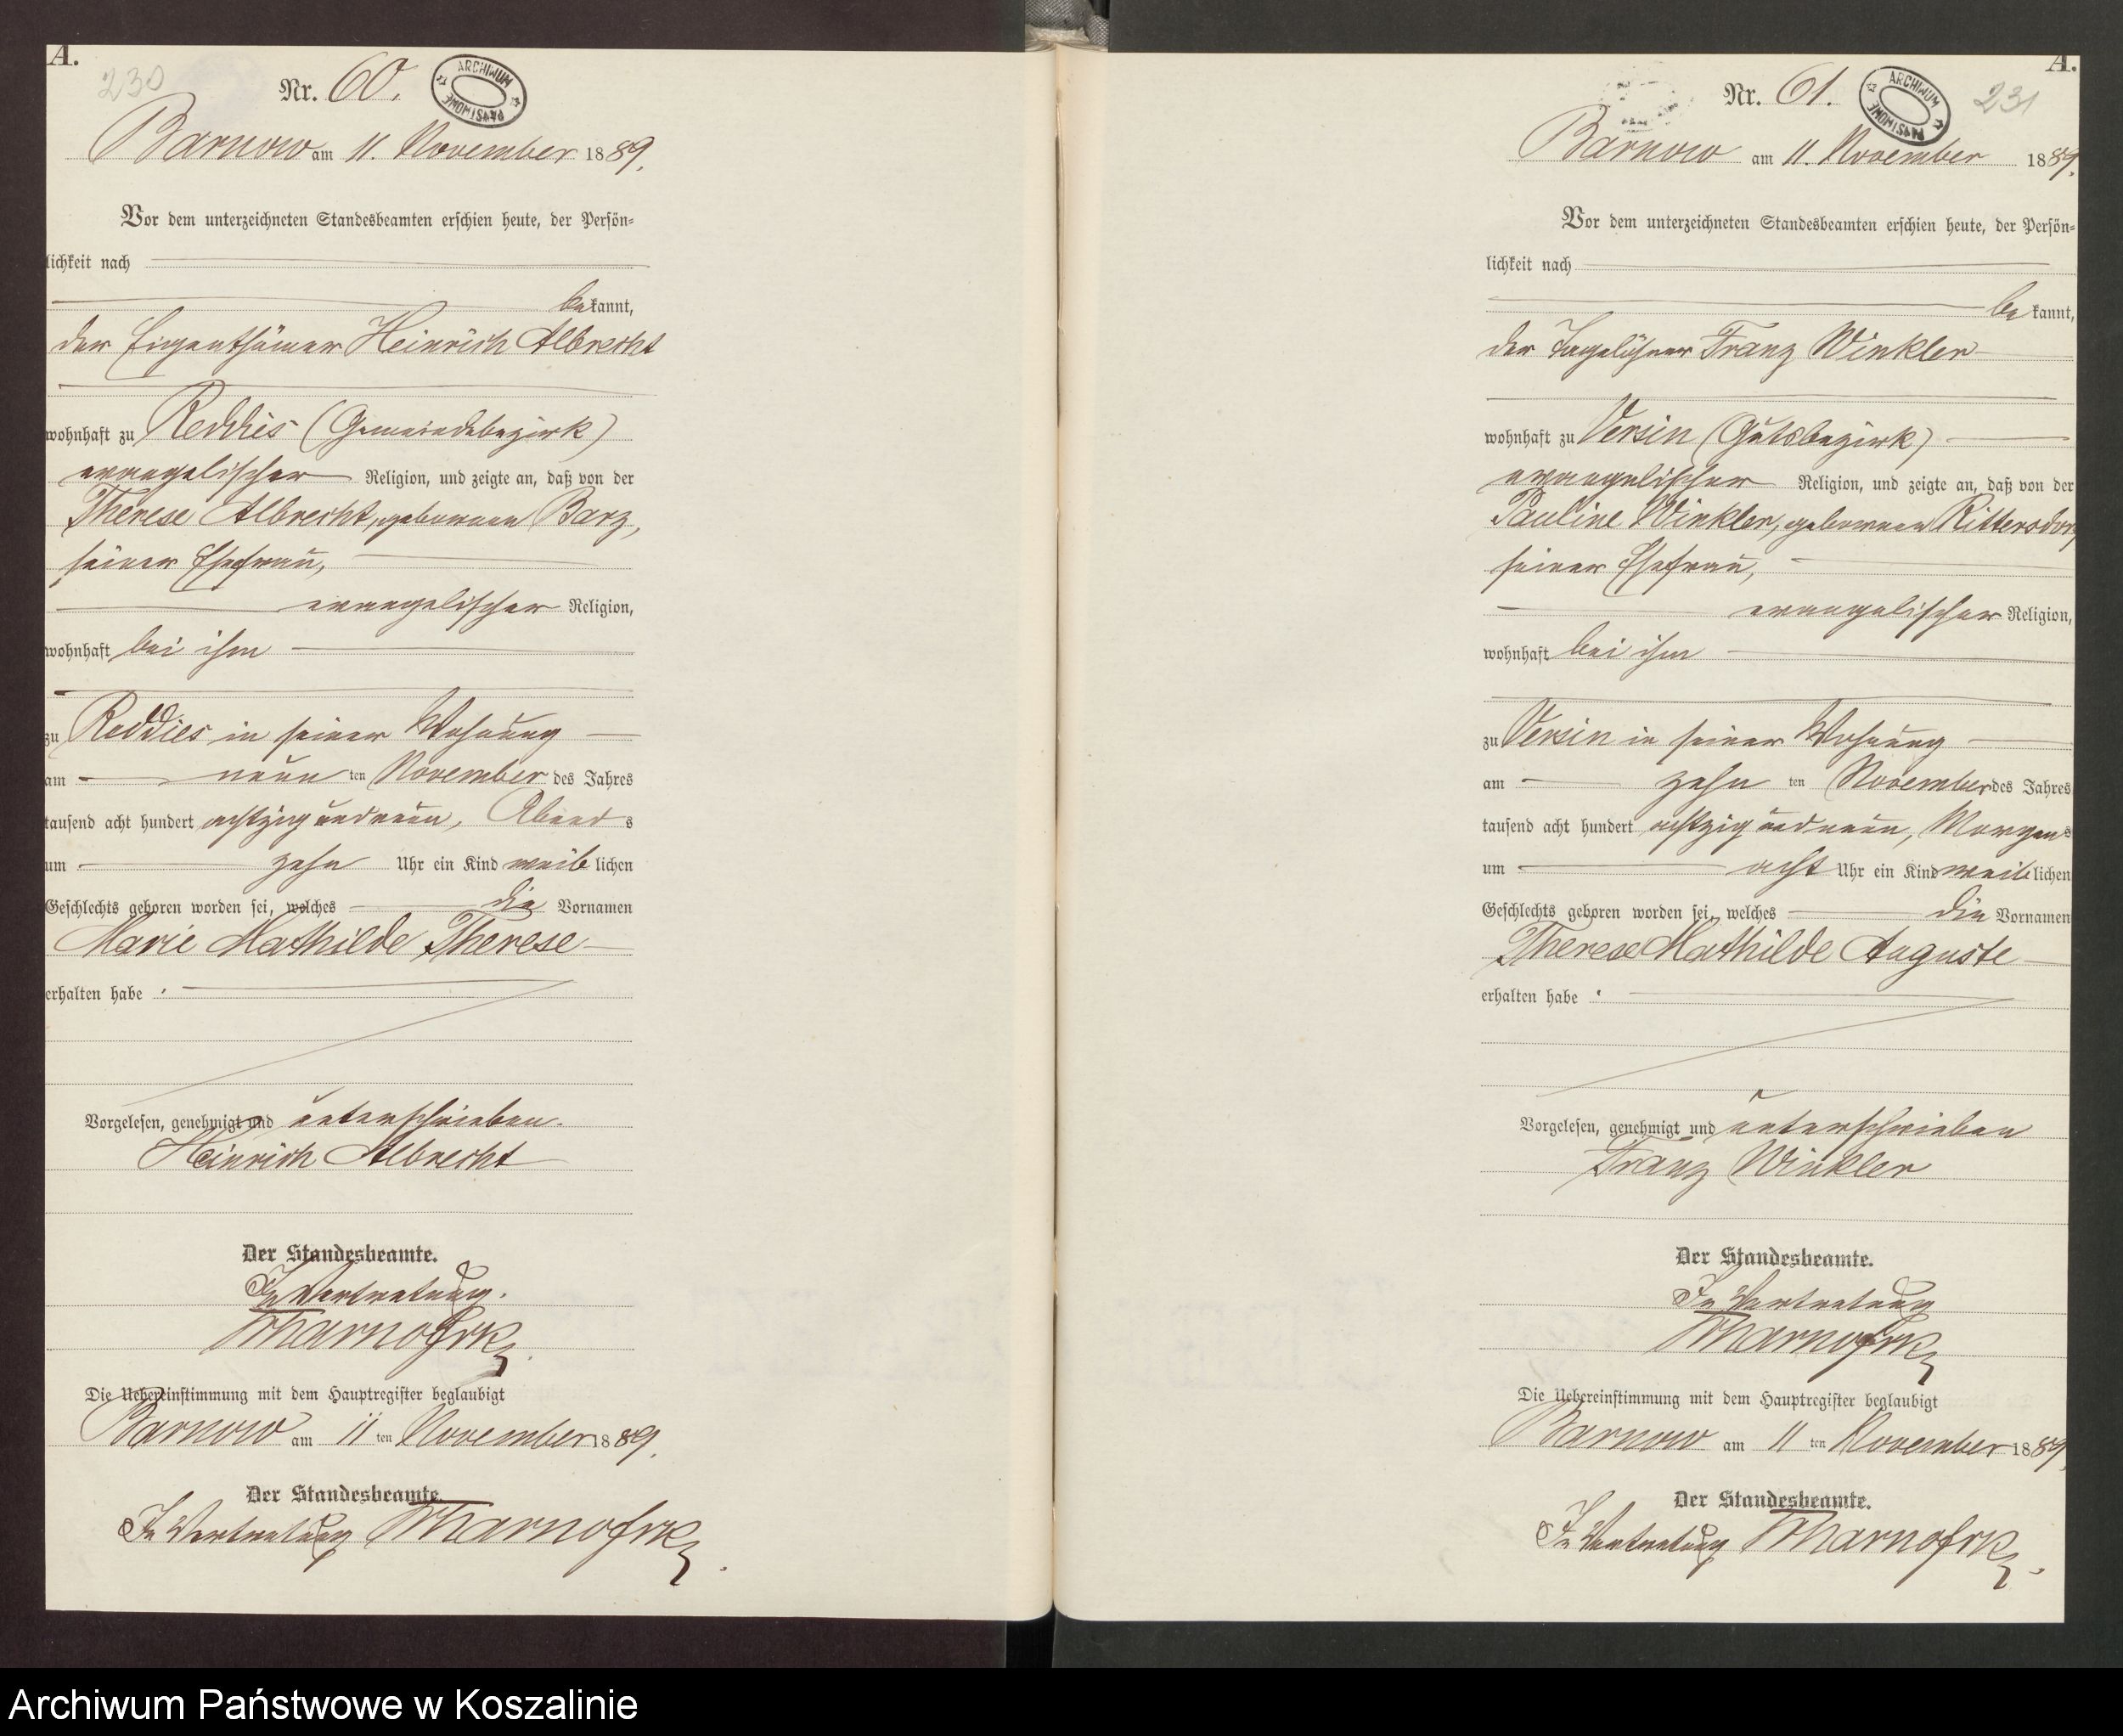 A.
230
Nr. 60.
ARCHIWUM PAŃSTWOWE
Barnow am 11. November 1889.
Vor dem unterzeichneten Standesbeamten erschien heute, der Persön-
lichkeit nach
bekannt,
der Eigenthümer Heinrich Albrecht
wohnhaft zu Reddies (Gemeindebezirk)
evangelischer Religion, und zeigte an, daß von der
Therese Albrecht, gebornen Barz,
seiner Ehefrau,
evangelischer Religion,
wohnhaft bei ihm
zu Reddies in seiner Wohnung
am neun ten November des Jahres
tausend acht hundert achtzig und neun, Abends
um zehn Uhr ein Kind weiblichen
Geschlechts geboren worden sei, welches die Vornamen
Marie Mathilde Therese
erhalten habe.
Vorgelesen, genehmigt und unterschrieben.
Heinrich Albrecht
Der Standesbeamte.
In Vertretung.
Die Uebereinstimmung mit dem Hauptregister beglaubigt
Barnow am 11 ten November 1889.
Der Standesbeamte.
In Vertretung
A.
Nr. 61.
ARCHIWUM PAŃSTWOWE
231
Barnow am 11. November 1889.
Vor dem unterzeichneten Standesbeamten erschien heute, der Persön-
lichkeit nach
bekannt,
der Tagelöhner Franz Winkler
wohnhaft zu Versin (Gutsbezirk)
evangelischer Religion, und zeigte an, daß von der
Pauline Winkler, gebornen Rittersdorf
seiner Ehefrau,
evangelischer Religion,
wohnhaft bei ihm
zu Versin in seiner Wohnung
am zehn ten November des Jahres
tausend acht hundert achtzig und neun, Morgens
um acht Uhr ein Kind weiblichen
Geschlechts geboren worden sei, welches die Vornamen
Therese Mathilde Auguste
erhalten habe.
Vorgelesen, genehmigt und unterschrieben
Franz Winkler
Der Standesbeamte.
In Vertretung
Die Uebereinstimmung mit dem Hauptregister beglaubigt
Barnow am 11 ten November 1889.
Der Standesbeamte.
In Vertretung
Archiwum Państwowe w Koszalinie